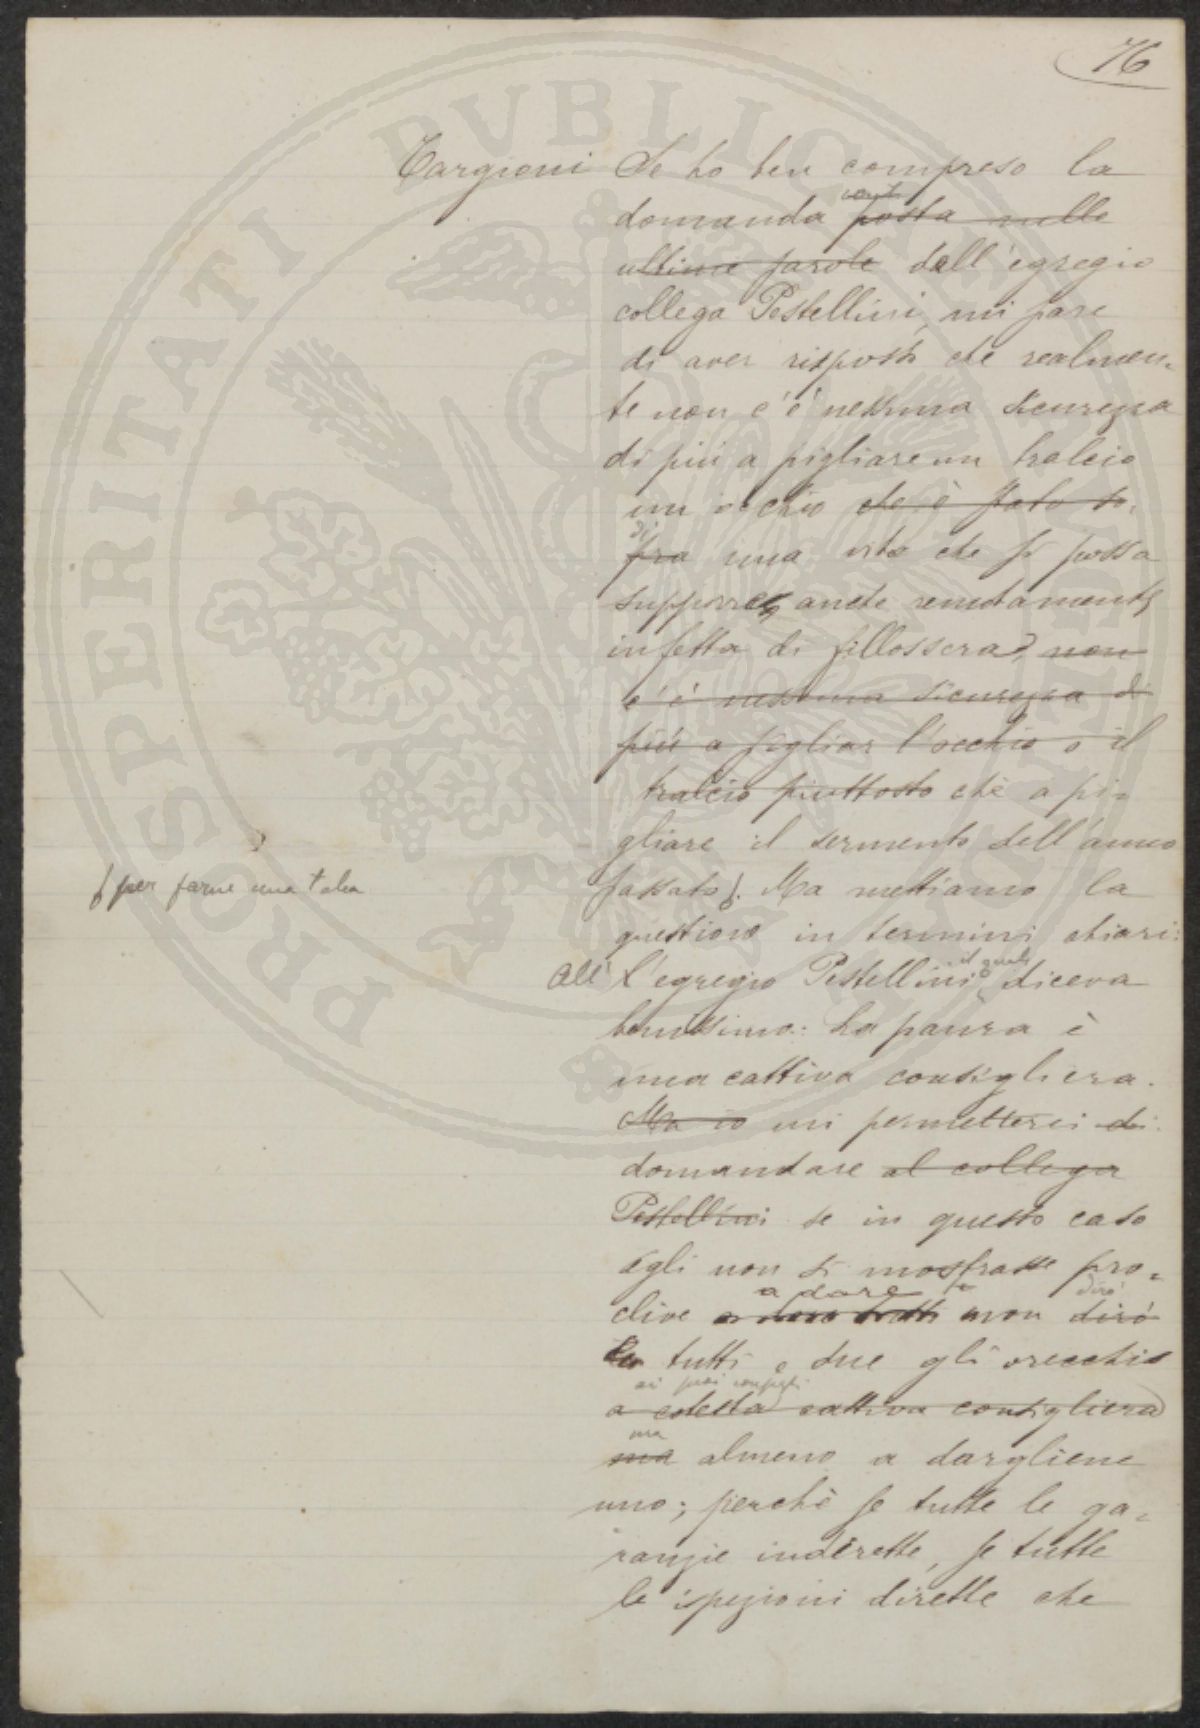 76
Targioni Se ho ben compreso la
domanda posta nelle
ultime parole dall'egregio
collega Pestellini, mi pare
di aver risposto che realmen-
te non c'è nessuna sicurezza
di più a pigliare un tralcio
un occhio che è stato so-
di
pra una vite che si possa
supporre anche remotamente
infetta di fillossera, non
c'è nessuna sicurezza di
più a pigliar l'occhio o il
tralcio piuttosto che a pi-
gliare il sermento dell'anno
passato. Ma mettiamo la
per farne una talea
questione in termini chiari:
il quale
All' l'egregio Pestellini diceva
benissimo: La paura è
una cattiva consigliera.
Ma io mi permetterei di
domandare al collega
Pestellini se in questo caso
egli non si mostrasse pro-
a dare dirò
clive non dirò
tutti e due gli orecchi
ai suoi consigli
a cotesta cattiva consigliera
ma
ma almeno a dargliene
uno; perchè se tutte le ga-
ranzie indirette, se tutte
le ispezioni dirette che
PROSPERITATI PVBLICAE